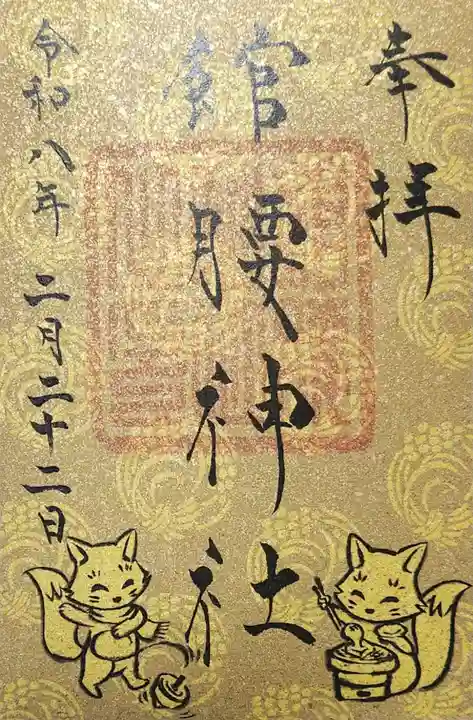 奉拝
館腰神社
令和八年 二月二十二日